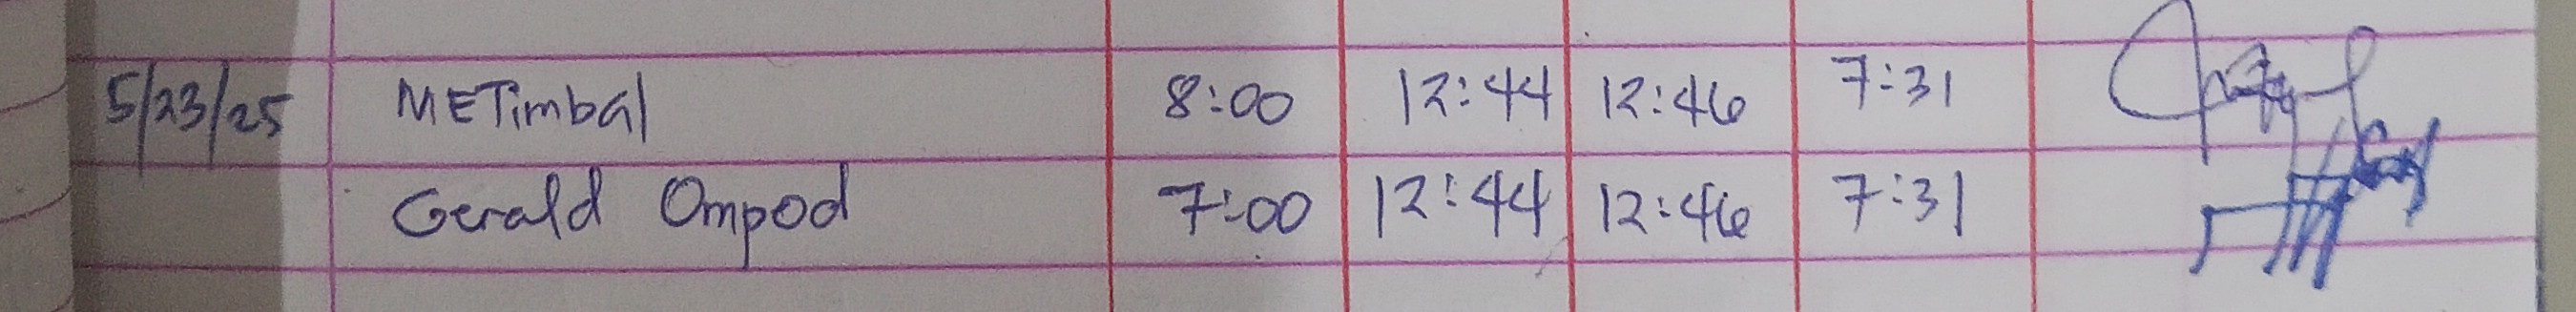 5/23/25 METimbal 8:00 12:44 12:46 7:31
Gerald Ompod 7:00 12:44 12:46 7:31